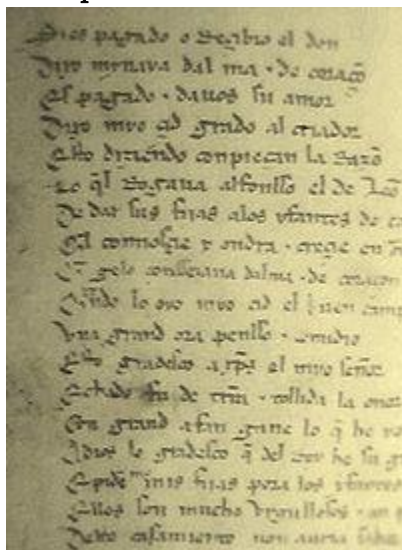 Si es pagado o Reçibio el don
Dixo mynaya dalma & de coraçõ
Es pagado & dauos su amor
Dixo myo çid grado al criador
Esto diziendo conpieçan la Razõ
Lo q̃l Rogaua alfonsso el de Leõ
De dar sus fijas alos yfantes de
connosçie y ondra & creçie en
gelo conseiaua dalma & de coraçon
Quãdo lo oyo myo cid el buen
Vna grand ora pensso & comidio
Esto gradesco a xp̃s el myo señor
Echado fu de tr̃ra & tollida la onor
Con grand afan gane lo q̃ he yo
A dios lo gradesco q̃ del Rey he su
E pidẽ mis fijas pora los yfantes
Ellos son mucho vrgullosos & an
Deste casamiento non auria sabor